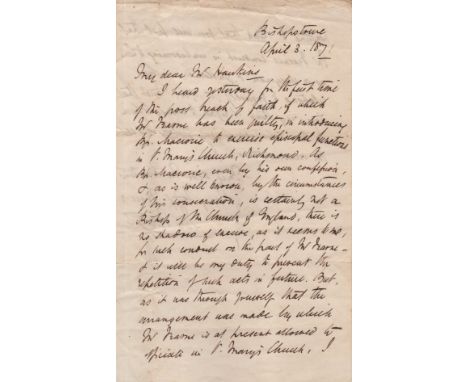 Bishopstowe
April 3. 187
My dear Mr Hawkins
I heard yesterday for the first time
of the gross breach of faith of which
Mr Narne has been guilty, in introducing
Bp. Macrorie to exercise episcopal functions
in S. Mary's Church, Richmond. As
Bp. Macrorie, even by his own confession,
& as is well known, by the circumstances
of his consecration, is certainly not a
Bishop of the Church of England, there is
no shadow of excuse, as it seems to me,
for such conduct on the part of Mr Narne -
& it will be my duty to prevent the
repetition of such acts in future. But,
as it was through yourself that the
arrangement was made by which
Mr Narne is at present allowed to
officiate in S. Mary's Church, I